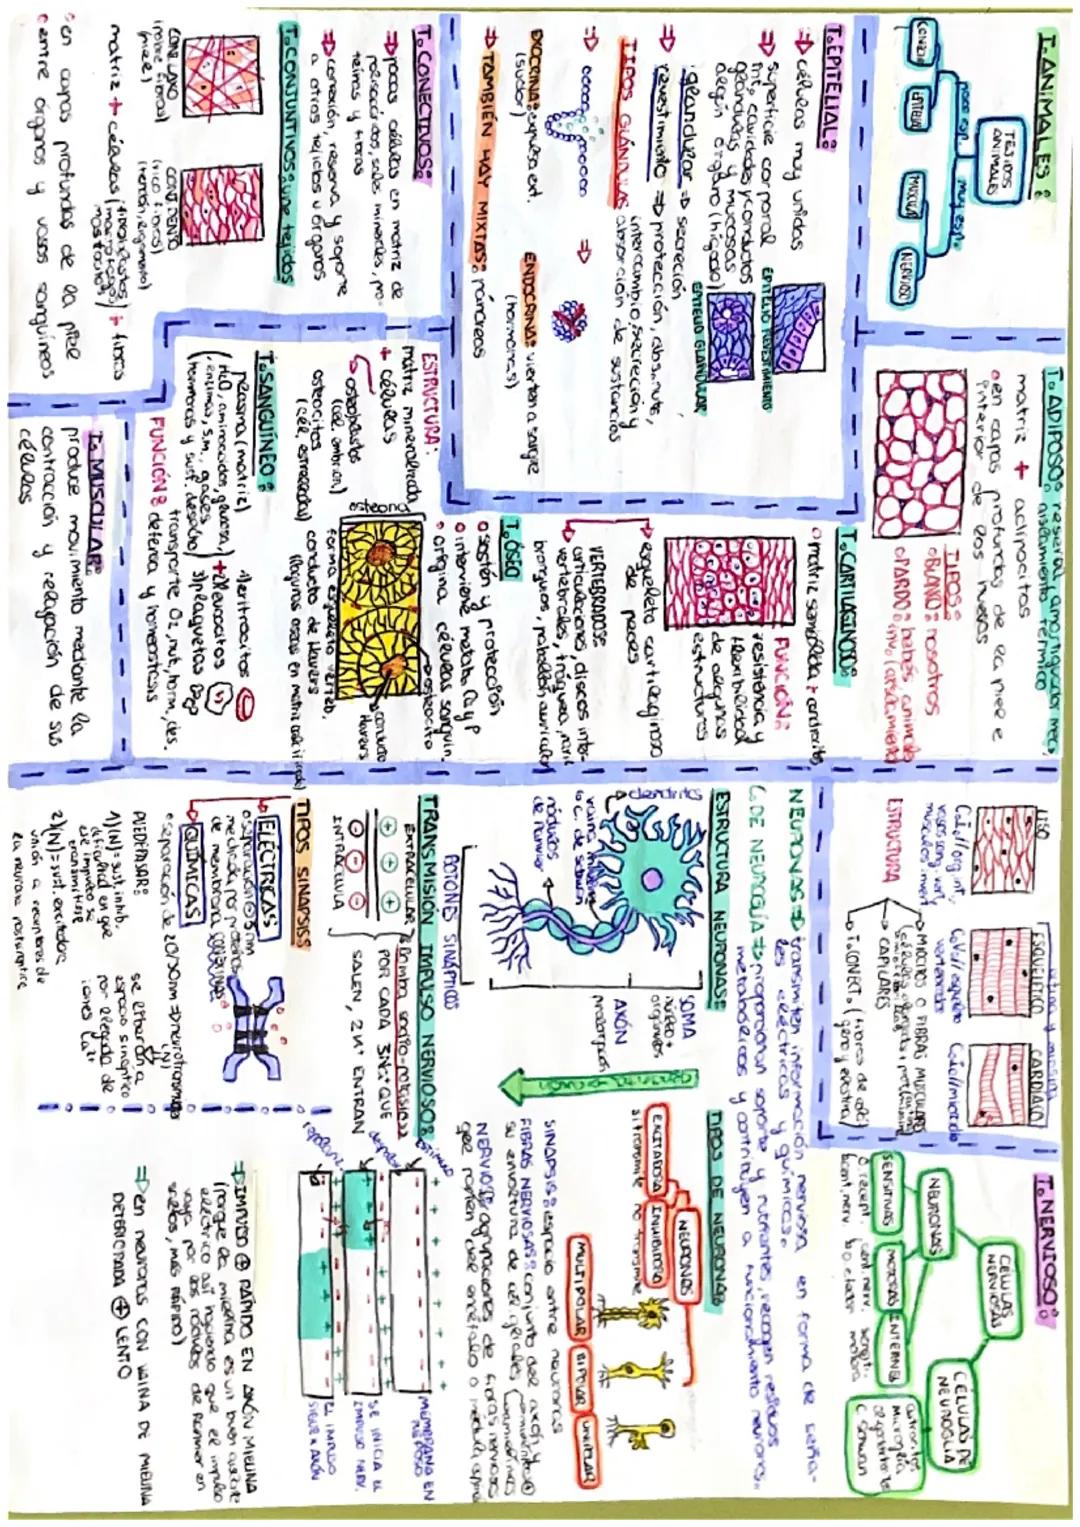 T. ANIMALES:
TEJIDOS ANIMALES
poco esp.
muy esp.
CONECTIV
EPITELIAL
MUSCULAR
NERVIOSO
T. EPITELIAL:
⇒ células muy unidas
⇒ superficie corporal
int, cavidades y conductos
glándulas y mucosas
algún órgano (hígado)
EPITELIO REVESTIMIENTO
EPITELIO GLANDULAR
glandular ⇒ secreción
revestimiento ⇒ protección, abs. nutr,
intercambio, secreción y
absorción de sustancias
TIPOS GLÁNDULAS
EXOCRINA: expulsa ext.
(sudor)
ENDOCRINA: vierten a sangre
(hormonas)
⇒ TAMBIÉN HAY MIXTAS: páncreas
T. CONECTIVOS:
⇒ pocas células en matriz de
polisacáridos, sales minerales, pro-
teínas y fibras
⇒ conexión, reserva y soporte
a otros tejidos u órganos
T. CONJUNTIVOS: une tejidos
CONJ. LAXO
(pobre fibras)
(piel)
CONJ. DENSO
(rico fibras)
(tendón, ligamento)
matriz + células (fibroblastos, macrófagos, mastocitos) + fibras
• en capas profundas de la piel
• entre órganos y vasos sanguíneos
T. ADIPOSO: reserva, amortiguador mecá,
aislamiento térmico
matriz + adipocitos
• en capas profundas de la piel e
interior de los huesos
TIPOS:
• BLANCO: nosotros
• PARDO: bebés, animales
T. CARTILAGINOSO:
• matriz semisólida + condrocitos
FUNCIÓN:
resistencia y
flexibilidad
de algunas
estructuras
esqueleto cartilaginoso
de peces
VERTEBRADOS:
articulaciones, discos inter-
vertebrales, tráquea, nariz
bronquios, pabellón auricular
T. ÓSEO
• sostén y protección
• interviene metab. Ca y P
• origina células sanguín.
ESTRUCTURA:
matriz mineralizada
+ células
osteoblastos
(cél. embrión)
osteocitos
(cél. esparcidas)
osteona
osteocito
conducto
Havers
forma esqueleto verteb.
conducto de Havers
T. SANGUÍNEO:
plasma (matriz)
(H₂O, aminoácidos, glucosa,
enzimas, S.m., gases,
hormonas y sust. desecho)
+
1) eritrocitos
2) leucocitos
3) plaquetas
transporte O₂, nut, horm, des.
FUNCIÓN: defensa y homeostasis
T. MUSCULAR:
produce movimiento mediante la
contracción y relajación de sus
células
LISO
ESQUELÉTICO
CARDIACO
ESTRUCTURA
MIOCITOS O FIBRAS MUSCULARES
CAPILARES
T. CONECT. (fibras de colá-
geno y elastina)
T. NERVIOSO:
CÉLULAS NERVIOSAS
NEURONAS
CÉLULAS DE NEUROGLÍA
SENSITIVAS
MOTORAS
INTERNEU
astrocitos
Microglía
oligodendroc
C. Schwann
NEURONAS ⇒ transmiten información nerviosa en forma de seña-
les eléctricas y químicas.
C. DE NEUROGLÍA ⇒ proporcionan soporte y nutrientes, recogen residuos
metabólicos y contribuyen a funcionamiento neuronas.
ESTRUCTURA NEURONAS:
dendritas
vaina mielina
C. de Schwan
nódulos
de Ranvier
SOMA
núcleo +
orgánulos
AXÓN
prolongac
BOTONES SINÁPTICOS
TIPOS DE NEURONAS
NEURONAS
EXCITADORA
INHIBIDORA
sí transmite
no transmite
MULTIPOLAR
BIPOLAR
UNIPOLAR
SINAPSIS: espacio entre neuronas
FIBRAS NERVIOSAS: conjunto del axón y
su envoltura de cél. gliales
NERVIOS: agrupaciones de fibras nerviosas
que parten del encéfalo o médula espinal
TRANSMISIÓN IMPULSO NERVIOSO:
EXTRACELULAR
INTRACELULA
Bomba sodio-potasio
POR CADA 3Na⁺ QUE
SALEN, 2K⁺ ENTRAN
estímulo
despolar
repolariz
MEMBRANA EN
REPOSO
SE INICIA EL
IMPULSO NERV.
EL IMPULSO
SIGUE AXÓN
TIPOS SINAPSIS
ELÉCTRICAS
• separación 3nm
mediada por proteínas
de membrana CONEXINAS
QUÍMICAS
• separación de 20/30nm ⇒ neurotransmisor
(N)
se liberan a
espacio sináptico
por llegada de
iones Ca²⁺
PUEDE SER:
1) (N) = sust. inhib.
dificultad en que
el impulso se
transmitiese
2) (N) = sust. excitadora
unión a receptores de
la neurona postsináptica
⇒ IMPULSO ⊕ RÁPIDO EN AXÓN MIELINA
(porque la mielina es un buen aislante
eléctrico así haciendo que el impulso
vaya por los nódulos de Ranvier en
saltos, más RÁPIDO)
⇒ en neuronas CON VAINA DE MIELINA
DETERIORADA ⊕ LENTO